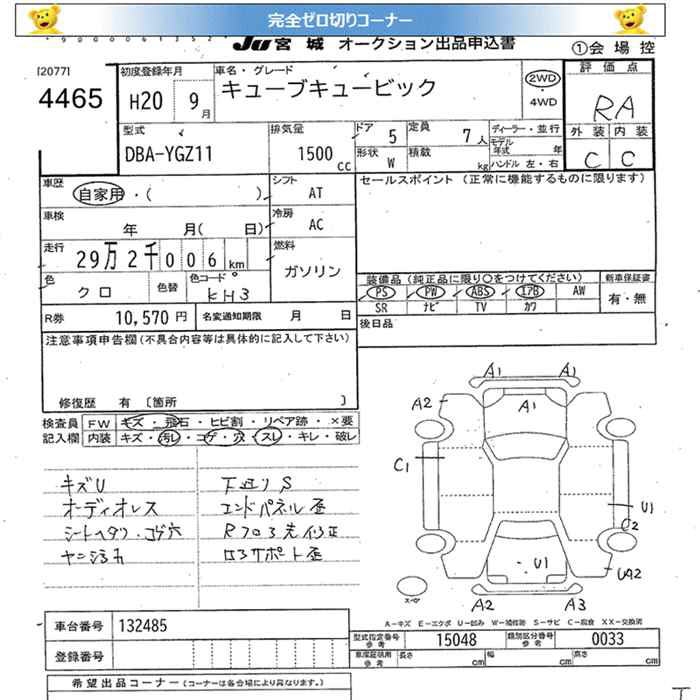 完全ゼロ切りコーナー
JU宮城 オークション出品申込書
①会場控
[2077]
4465
初度登録年月
H20 9月
車名・グレード
キューブキュービック
2WD
・
4WD
評価点
RA
外装 内装
C C
型式
DBA-YGZ11
排気量
1500 cc
ドア 5
定員 7人
形状 W
積載 kg
ディーラー・並行
モデル年式 年
ハンドル 左・右
車歴
自家用・( )
シフト
AT
セールスポイント (正常に機能するものに限ります)
車検
年 月( 日)
冷房
AC
走行
29万2千006km
燃料
ガソリン
色
クロ
色替
色コード
KH3
装備品 (純正品に限り○をつけてください)
新車保証書
PS PW ABS エアB AW
有・無
SR ナビ TV カワ
R券 10,570円
名変通知期限 月 日
後日品
注意事項申告欄 (不具合内容等は具体的に記入して下さい)
修復歴 有 〔箇所 〕
検査員記入欄
FW キズ・飛石・ヒビ割・リペア跡・×要
内装 キズ・汚レ・コゲ・穴・スレ・キレ・破レ
キズU
オーディオレス
シートヘタリ・コゲ穴
ヤニ汚れ
下廻りS
エンドパネル歪
Rフロア先修正
ロアサポート歪
A1 A1
A2 A1
C1
U1
C2
U1
UA2
A2 A3
スペア
A-キズ E-エクボ U-凹み W-補修跡 S-サビ C-腐食 XX-交換済
車台番号 132485
型式指定番号 参考 15048
類別区分番号 参考 0033
登録番号
車庫証明用 参考 長さ cm 幅 cm 高さ cm
希望出品コーナー (コーナーは各会場により異なります。)